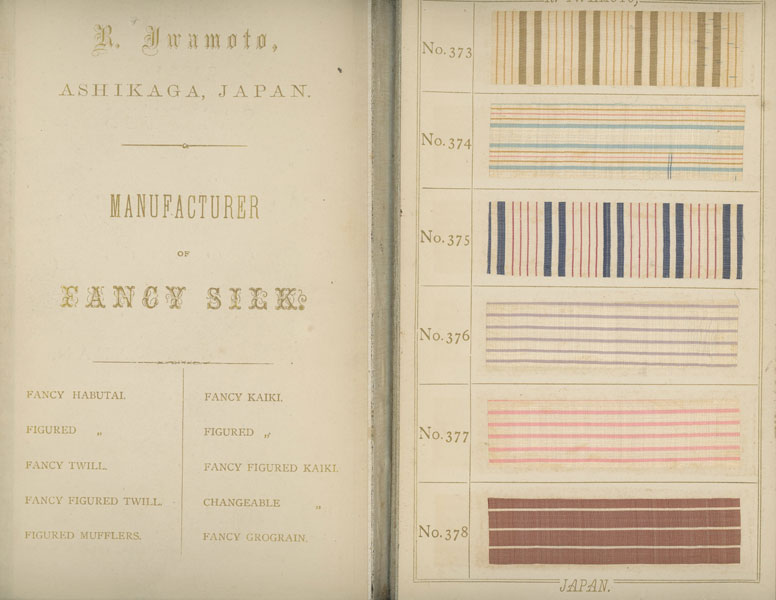 R. Iwamoto,
ASHIKAGA, JAPAN.
MANUFACTURER
OF
FANCY SILK.
FANCY HABUTAI.
FIGURED „
FANCY TWILL.
FANCY FIGURED TWILL.
FIGURED MUFFLERS.
FANCY KAIKI.
FIGURED „
FANCY FIGURED KAIKI.
CHANGEABLE „
FANCY GROGRAIN.
R. IWAMOTO,
No. 373
No. 374
No. 375
No. 376
No. 377
No. 378
JAPAN.